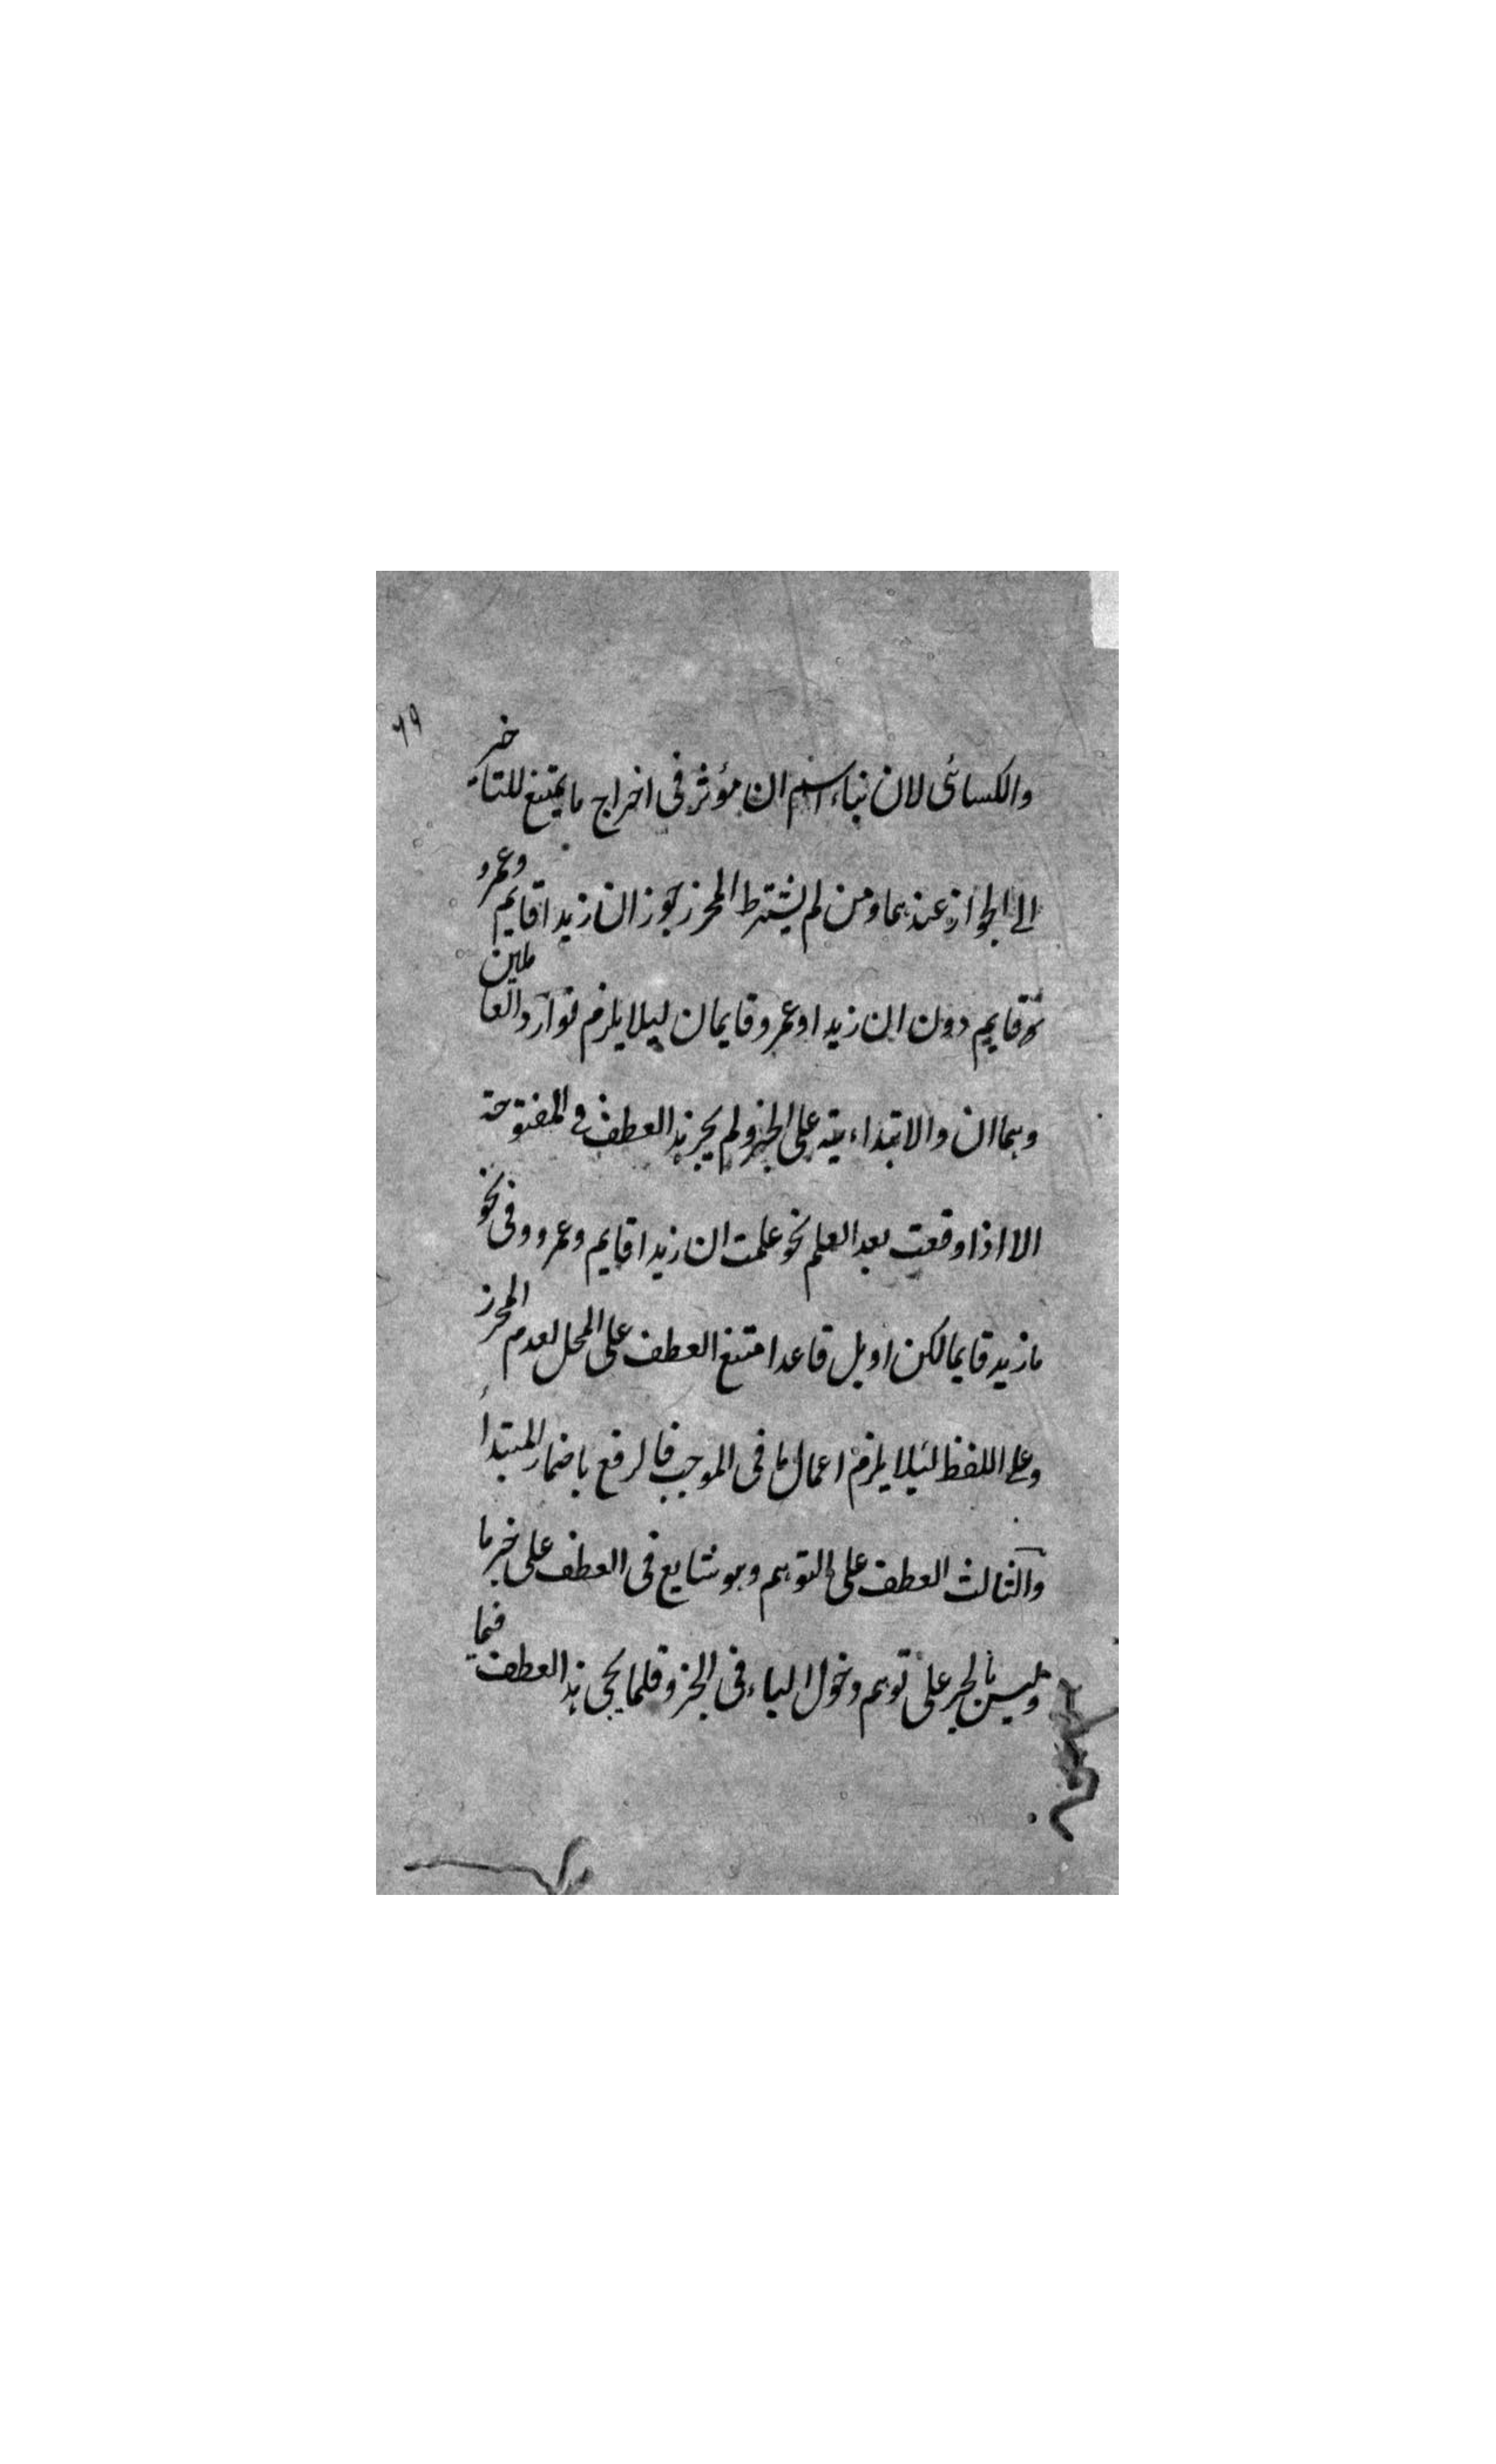 ٦٩
والكسائى لان بناء اسم ان مؤثر فى اخراج ما يمتنع للتاخير
الى الجواز عندهما ومن لم يشترط المحرز جوز ان زيدا قايم وعمرو
قايم دون ان زيدا وعمرو قايمان ليلا يلزم توارد العاملين
وهما ان والابتداءية على الخبر ولم يجز هذا العطف فى المفتوحة
الا اذا وقعت بعد العلم نحو علمت ان زيدا قايم وعمرو وفى نحو
ما زيد قايما لكن او بل قاعدا متنع العطف على المحل لعدم المحرز
وعلى اللفظ لئيلا يلزم اعمال ما فى الموجب فالرفع باضمار المبتدأ
والثالث العطف على التوهم وهو شايع فى العطف على خبر ما
وليس بالجر على توهم دخول الباء فى الخبر وقلما يجى هذا العطف فيما